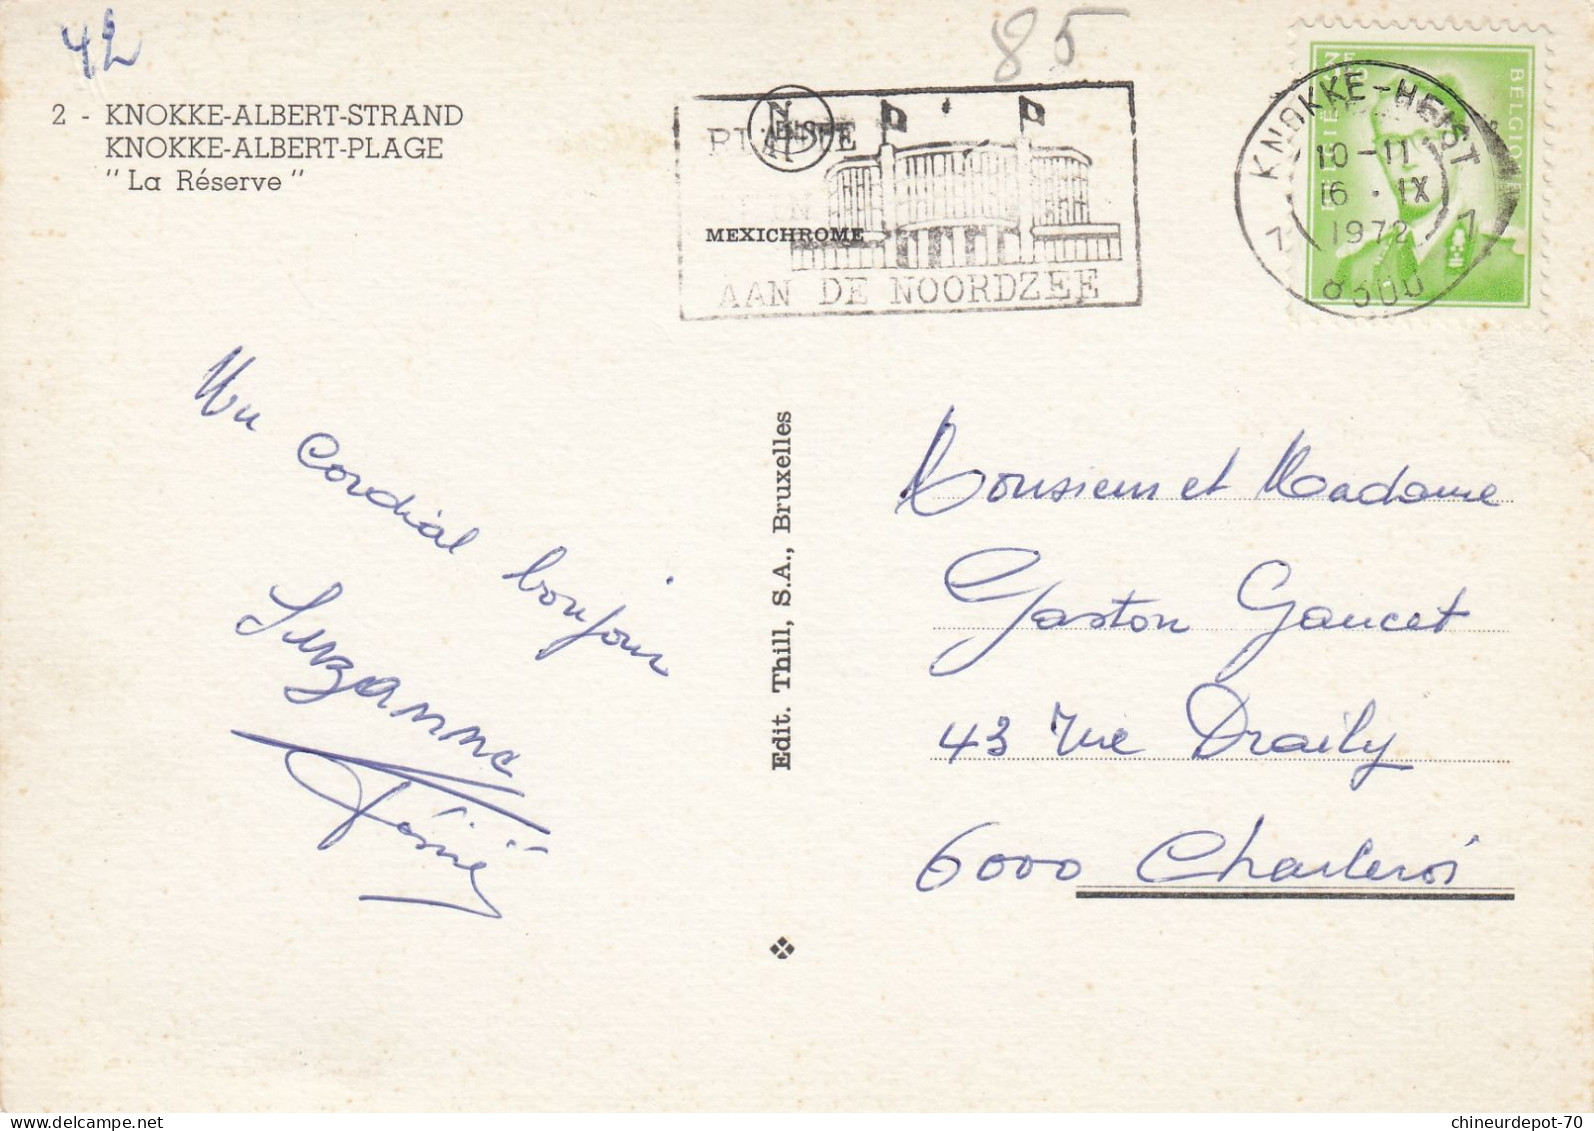 42
85
2 - KNOKKE-ALBERT-STRAND
KNOKKE-ALBERT-PLAGE
"La Réserve"
MEXICHROME
AAN DE NOORDZEE
KNOKKE-HEIST
10-11
16 · IX
1972
7 7
8300
BELGIË
BELGIQUE
Un cordial bonjour
Suzanne
Edit. Thill, S.A., Bruxelles
Monsieur et Madame
Gaston Gaucet
43 rue Draily
6000 Charleroi
chineurdepot-70